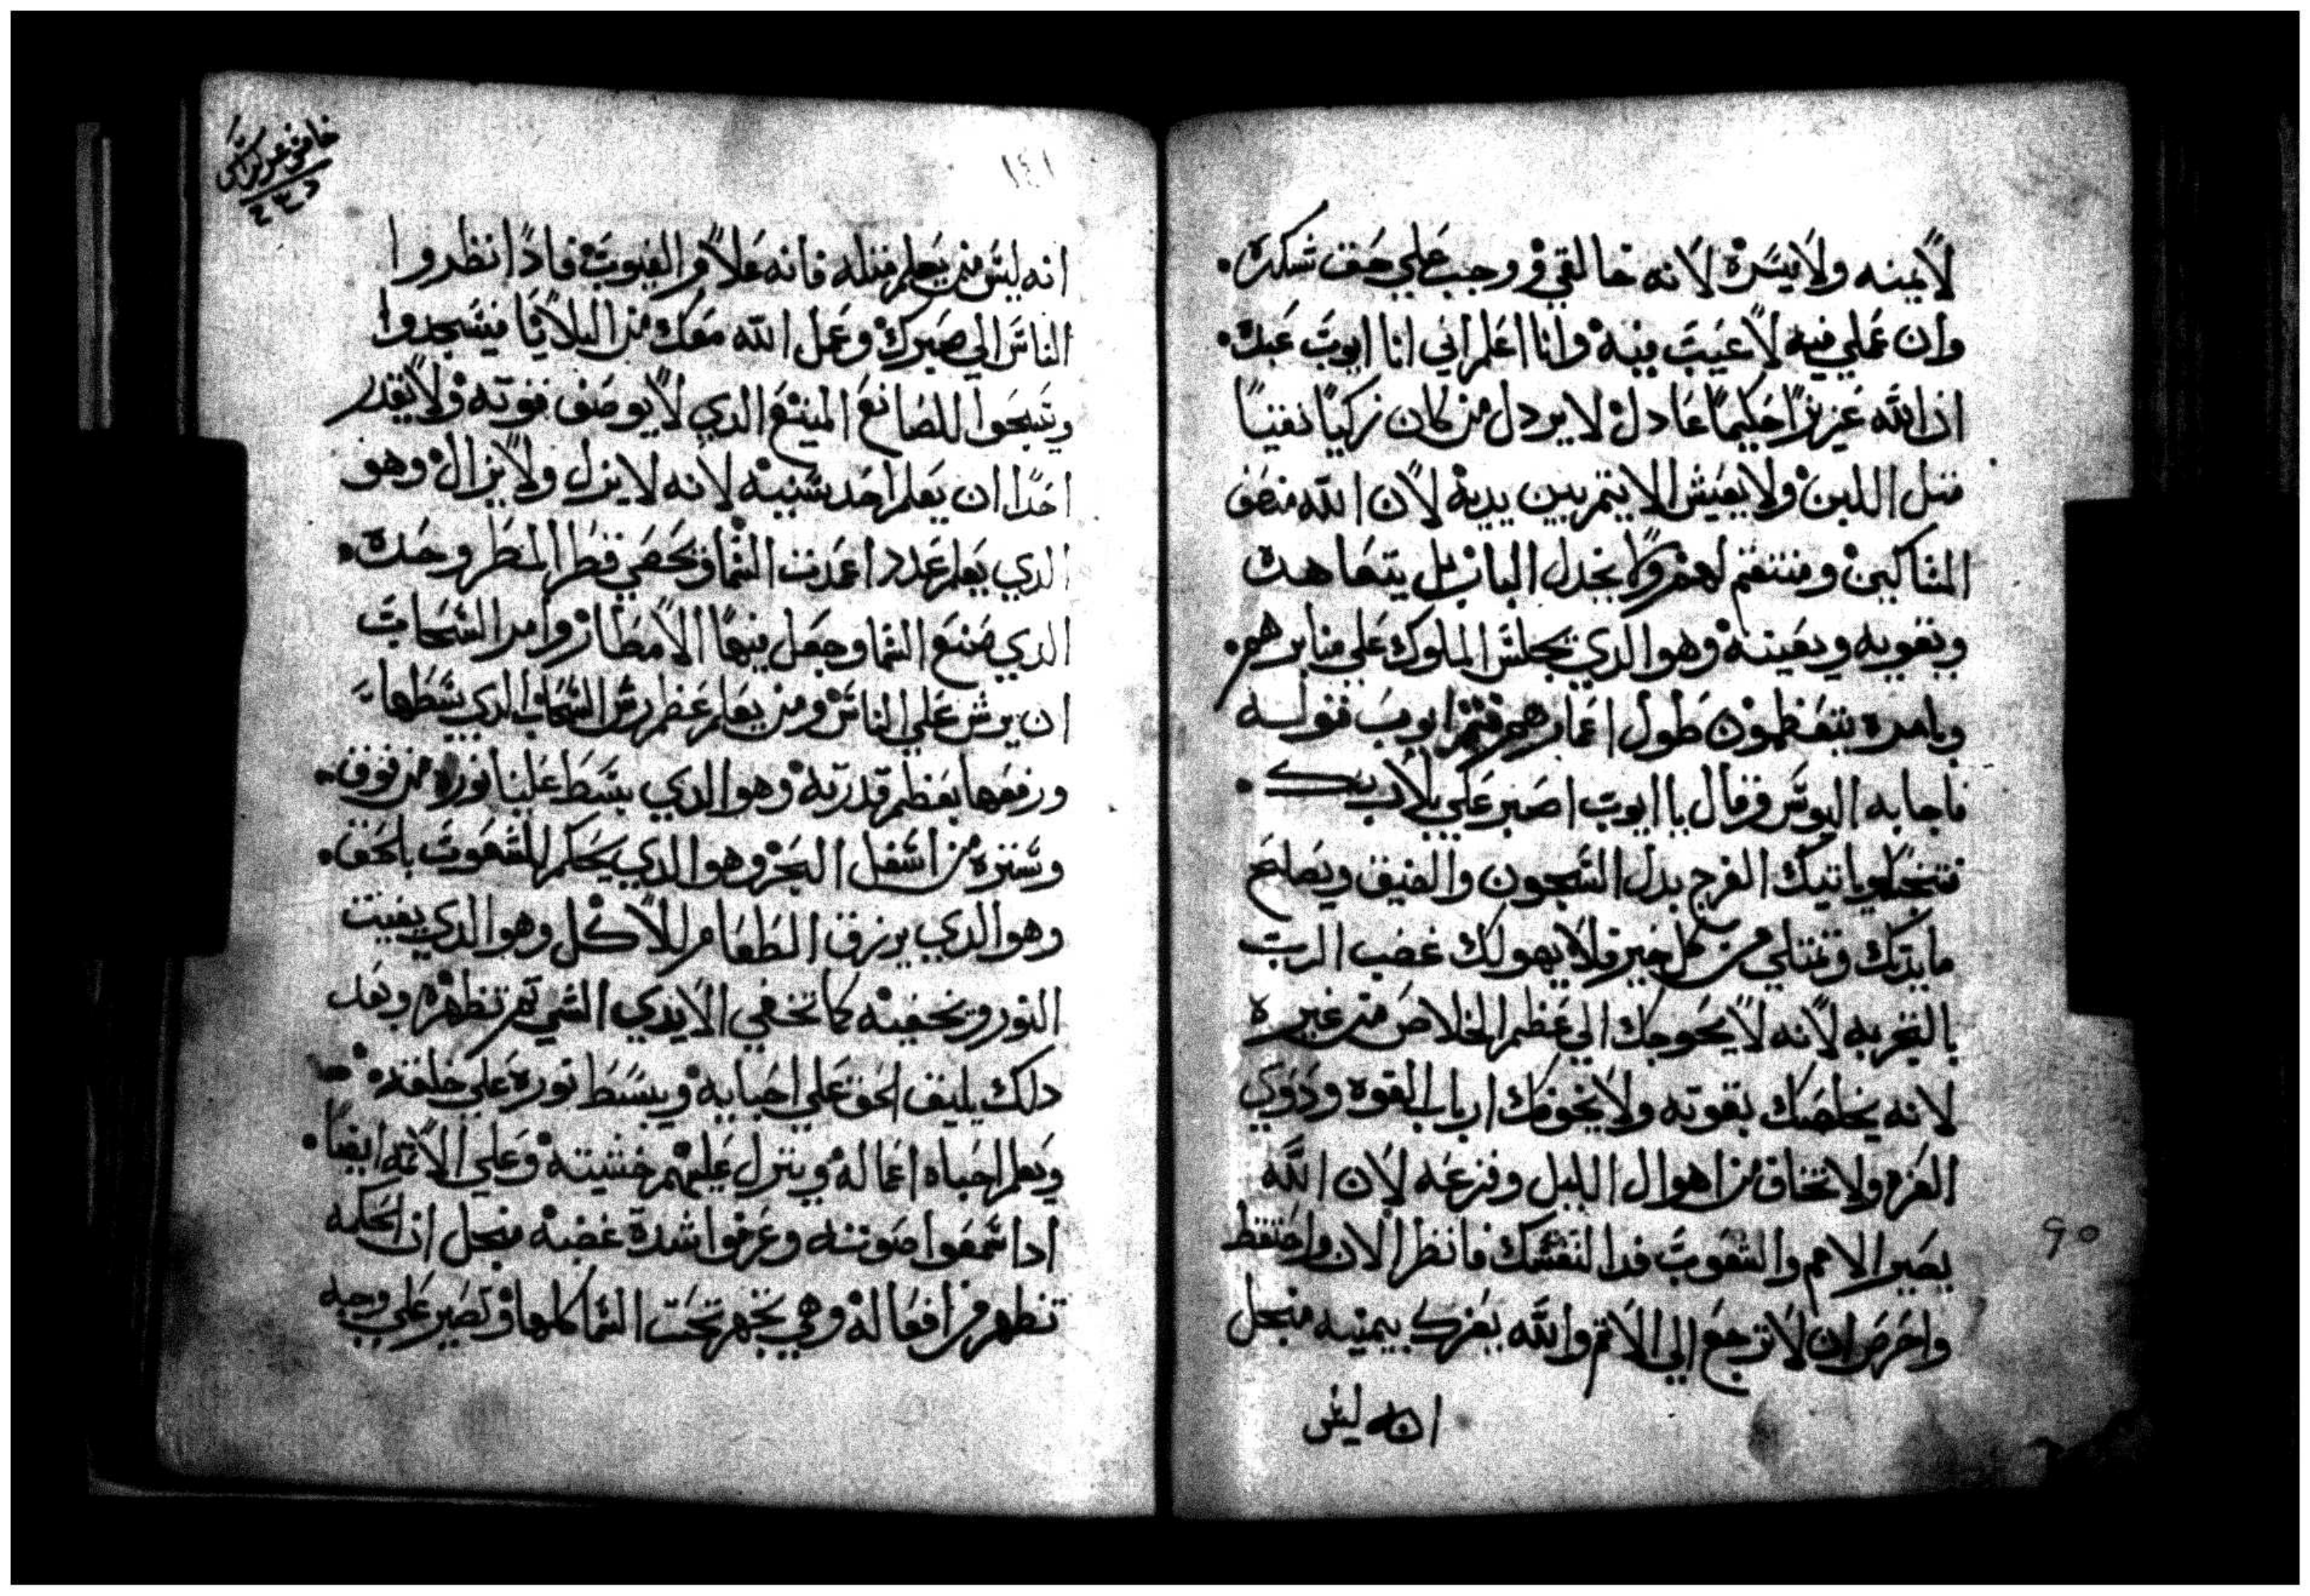 لا يمنه ولا يسره لانه خالقي ووجب علي حق شكره.
وان عملي فيه لا عيب فيه وانا اعلم اني انا ايوب عبدك.
ان الله عزيزا حكيما عادل لا يردل من كان زكيا نقيا
متل اللبن ولا يعيش الاتيم بين يديه لان الله منصف
المساكين ومنتقم لهم ولا يخدل البار بل يتعاهده
ويقويه ويعينه وهو الدي يجلس الملوك علي منابرهم.
وبامره يتعظمون طول اعمارهم فتمم ايوب قوله
فاجابه اليوس وقال يا ايوب اصبر علي بلا ربك.
فتنجا وياتيك الفرج بدل السجون والضيق ويصلح
مايدتك وتمتلي من كل خير ولا يهولك غضب الرب
بالتجربه لانه لا يحوجك الي عظم الخلاص من غيره
لانه يخلصك بقوته ولا يخوفك ارباب القوه ودوي
العزه ولا تخاف من اهوال الليل وفزعه لان الله
يصير الامم والشعوب فدا لنفسك فانظر الان واحتفظ
واحرص ان لا ترجع الي الاتم والله يعزك بيمينه منجل
انه ليس
١٤١
انه ليس من يعلم متله فانه علام الغيوب فادا انظروا
الناس الي صبرك وعمل الله معك من البلايا فيسجدوا
ويسبحوا للصانع المينع الدي لا يوصف قوته ولا يقدر
احدا ان يعلم احد بشبيه لانه لا يزل ولا يزال وهو
الدي يعلم عدد اعمدت السما ويحصي قطر المطر وحده.
الدي صنع السما وجعل فيها الامطار وامر السحاب
ان يرش علي الناس ومن يعلم عظم رش السحاب الدي بسطها
ورفعها بعظم قدرته وهو الدي بسط علينا نوره من فوق.
وستره من اسفل البحر وهو الدي يحكم للشعوب بالحق.
وهو الدي يرزق الطعام للاكل وهو الدي يغيت
النور ويخفيه كما تخفي الايدي الشي تم تظهره وبعد
دلك يليق الحق علي احبايه ويبسط نوره علي خلقه.
ويعلم احباه اعماله وينزل عليهم خشيته وعلي الاتمه ايضا.
ادا سمعوا صوته وعرفوا شدة غضبه منجل ان الحكمه
تظهر من افعاله وهي تجهر تحت السما كلها وتصير علي وجه
90